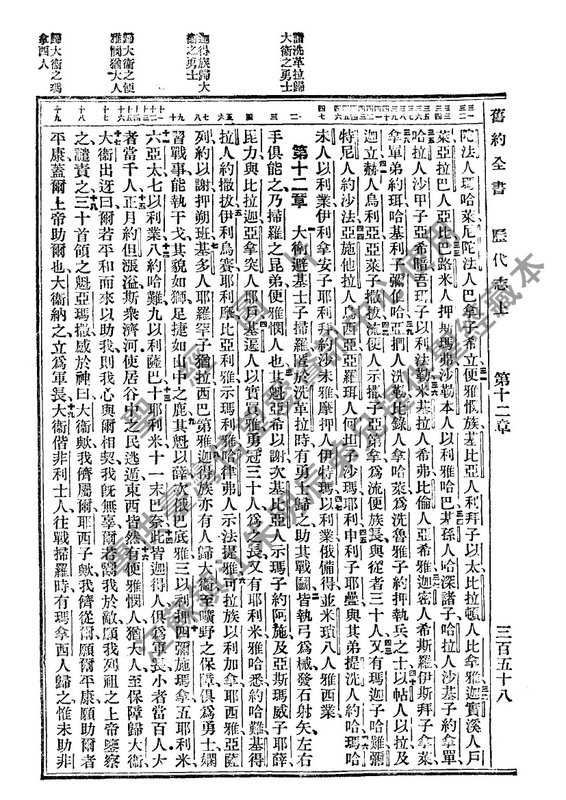 舊約全書 歷代志上 第十二章 三百五十八
譜洗革拉歸
大衛之勇士
迦得族歸大
衛之勇士
歸大衛之便
雅憫猶大人
歸大衛之瑪
拿西人
陀法人瑪哈萊尼陀法人巴拿子希立便雅憫族基比亞人利拜子以太比拉頓人比拿雅迦實溪人戶
萊亞拉巴人亞比路米人押斯瑪弗沙勒本人以利雅哈巴基孫人哈深諸子哈拉人沙基子約拿單
哈拉人沙甲子亞希暗吾珥子以利法勒米基拉人希弗比倫人亞希雅迦密人希斯羅伊斯拜子拿萊
拿單弟約珥哈基利子彌伯哈亞捫人洗勒比錄人拿哈萊為洗魯雅子約押執兵之士以帖人以拉及
迦立赫人烏利亞亞萊子撒拔流便人示撒子亞第拿為流便族長與從者三十人又有瑪迦子哈難彌
特尼人約沙法亞施他拉人烏西亞亞羅珥人何坦二子沙瑪耶利申利子耶疊與其弟提洗人約哈瑪哈
未人以利業伊利拿安子耶利拜約沙未雅摩押人伊特瑪以利業俄備得並米瑣八人雅西業
第十二章 大衛避基士子掃羅匿於洗革拉時有勇士歸之助其戰鬬皆執弓為械發石射矢左右
手俱能之乃掃羅之昆弟便雅憫人也其魁亞希以謝次基比亞人示瑪子約阿施及亞斯瑪威子耶薛
毘力與比拉迦亞拿突人耶戶基遍人以實買雅勇冠三十人為其長又有耶利米雅哈悉約哈難基得
拉人約撒拔伊利烏賽耶利摩比亞利雅示瑪利雅哈律弗人示法提雅可拉族以利加拿耶西雅亞薩
列約以謝押朔班基多人耶羅罕子猶拉西巴第雅迦得族亦有人歸大衛至曠野之保障俱為勇士嫻
習戰事能執干戈其貌如獅足捷如山中之鹿其魁以薛次俄巴底雅三以利押四彌施瑪拿五耶利米
六亞太七以利業八約哈難九以利薩巴十耶利米十一末巴奈此皆迦得人俱為軍長小者當百人大
者當千人正月約但漲溢斯眾濟河使居谷中之民逃遁東西皆然有便雅憫人猶大人至保障歸大衛
大衛出迓曰爾若平和而來以助我則我心與爾相契我既無辜爾若鬻我於敵願我列祖之上帝鑒察
之譴責之三十首領之魁亞瑪撒感於神曰大衛歟我儕屬爾耶西子歟我儕從爾願爾平康願助爾者
平康蓋爾上帝助爾也大衛納之立為軍長大衛偕非利士人往戰掃羅時有瑪拿西人歸之惟未助非